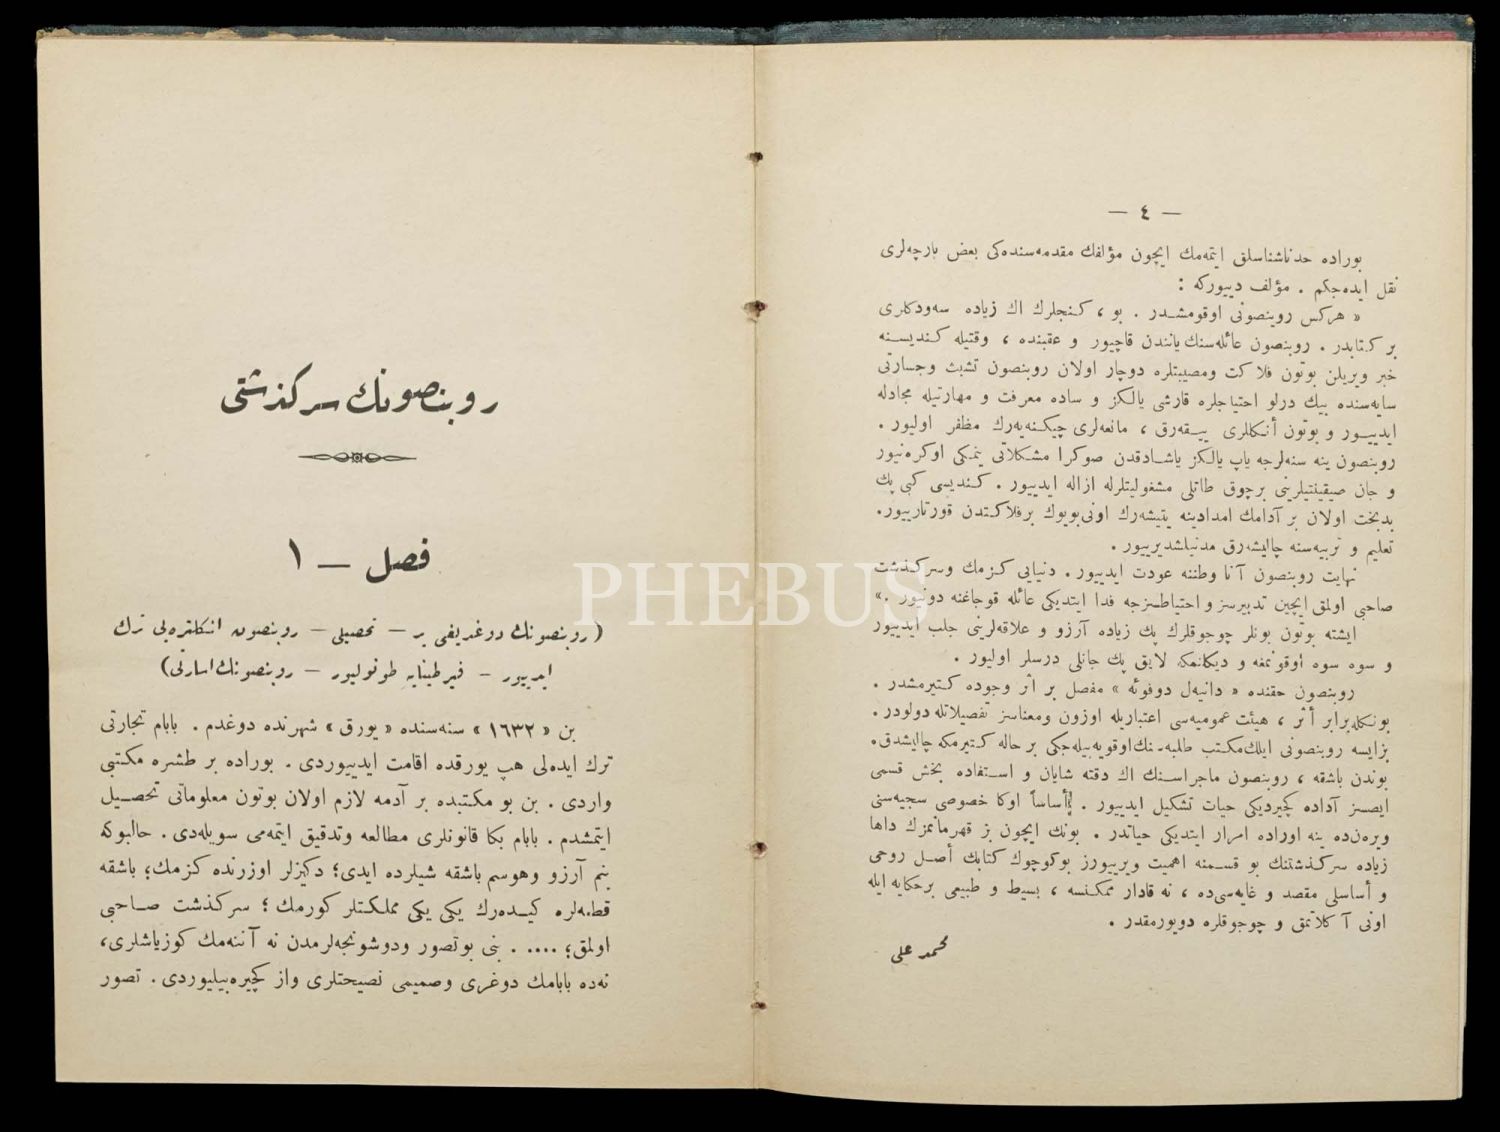 — ٤ —
بوراده حدناشناسلق ایتمه‌مك ایچون مؤلفك مقدمه‌سنده‌کی بعض پارچه‌لری
نقل ایده‌جکم . مؤلف دییورکه :
« هرکس روبنصونی اوقومشدر . بو ، کنجلرك اك زیاده سه‌ودکلری
بر کتابدر . روبنصون عائله‌سنك یانندن قاچیور و عقبنده ، وقتیله کندیسنه
خبر ویریلن بوتون فلاکت ومصیبتلره دوچار اولان روبنصون تشبث وجسارتی
سایه‌سنده بیك درلو احتیاجلره قارشی یالکز و ساده معرفت و مهارتیله مجادله
ایدییور و بوتون أنکللری ییقه‌رق ، مانعه‌لری چیکنه‌یه‌رك مظفر اولیور .
روبنصون ینه سنه‌لرجه یاپ یالکز یاشادقدن صوکرا مشکلاتی ینمکی اوکره‌نیور
و جان صیقینتیلرینی برچوق طاتلی مشغولیتلرله ازاله ایدییور . کندیسی کبی پك
بدبخت اولان بر آدامك امدادینه یتیشه‌رك اونی بویوك برفلاکتدن قورتارییور.
تعلیم و تربیه‌سنه چالیشه‌رق مدنیلشدیرییور .
نهایت روبنصون آنا وطننه عودت ایدییور . دنیایی کزمك وسرکذشت
صاحبی اولمق ایچین تدبیرسز و احتیاطسزجه فدا ایتدیکی عائله قوجاغنه دونیور .»
ایشته بوتون بونلر چوجوقلرك پك زیاده آرزو و علاقه‌لرینی جلب ایدییور
و سوه سوه اوقونمغه و دیکلنمکه لایق پك جانلی درسلر اولیور .
روبنصون حقنده « دانیه‌ل دوفوئه » مفصل بر أثر وجوده کتیرمشدر .
بونکله‌برابر أثر ، هیئت عمومیه‌سی اعتباریله اوزون ومعناسز تفصیلاتله دولودر.
بزایسه روبنصونی ایلك‌مکتب طلبه‌سنك‌اوقویه‌بیله‌جکی بر حاله کتیرمکه چالیشدق.
بوندن باشقه ، روبنصون ماجراسنك اك دقته شایان و استفاده بخش قسمی
ایصز آداده کچیردیکی حیات تشکیل ایدییور . أساساً اوکا خصوصی سجیه‌سنی
ویره‌ن‌ده ینه اوراده امرار ایتدیکی حیاتدر . بونك ایچون بز قهرمانمزك داها
زیاده سرکذشتنك بو قسمنه اهمیت ویرییورز بوکوچوك کتابك أصل روحی
و أساسلی مقصد و غایه‌سی‌ده ، نه قادار ممکنسه ، بسیط و طبیعی برحکایه ایله
اونی آکلاتمق و چوجوقلره دویورمقدر .
محمد علی
روبنصونك سرکذشتی
فصل — ١
( روبنصونك دوغدیغی یر — تحصیلی — روبنصون انکلتره‌یی ترك
ایدییور — فیرطینایه طوتولیور — روبنصونك اسارتی )
بن « ١٦٣٢ » سنه‌سنده « یورق » شهرنده دوغدم . بابام تجارتی
ترك ایده‌لی هپ یورقده اقامت ایدییوردی . بوراده بر طشره مکتبی
واردی . بن بو مکتبده بر آدمه لازم اولان بوتون معلوماتی تحصیل
ایتمشدم . بابام بکا قانونلری مطالعه وتدقیق ایتمه‌می سویله‌دی . حالبوکه
بنم آرزو وهوسم باشقه شیلرده ایدی؛ دکیزلر اوزرنده کزمك؛ باشقه
قطعه‌لره کیده‌رك یکی یکی مملکتلر کورمك ؛ سرکذشت صاحبی
اولمق؛ .... . بنی بوتصور ودوشونجه‌لرمدن نه آننه‌مك کوزیاشلری،
نه‌ده بابامك دوغری وصمیمی نصیحتلری واز کچیره‌بیلیوردی . تصور
PHEBUS